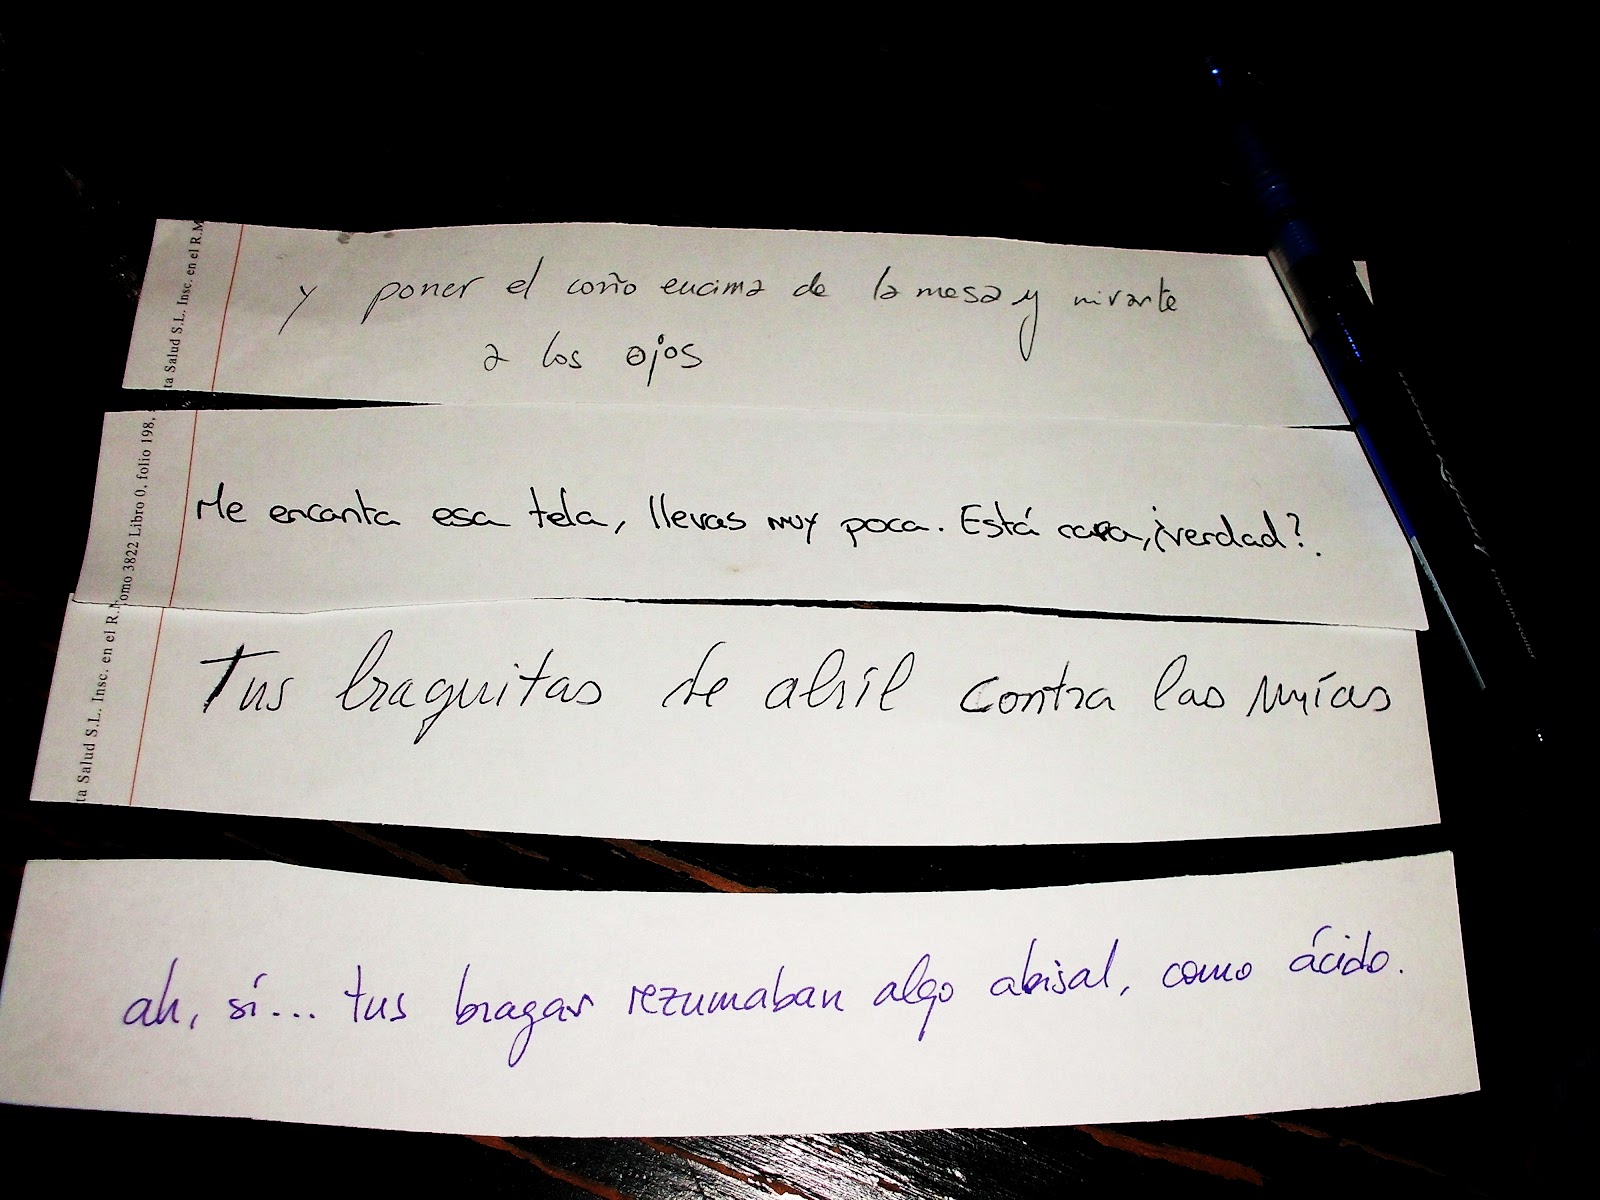 ta Salud S.L. Insc. en el R.M
y poner el coño encima de la mesa y mirarte
a los ojos
omo 3822 Libro 0, folio 198,
Me encanta esa tela, llevas muy poca. Está cara, ¿verdad?.
ta Salud S.L. Insc. en el R.
Tus braguitas de abril contra las mías
ah, sí... tus bragas rezumaban algo abisal, como ácido.